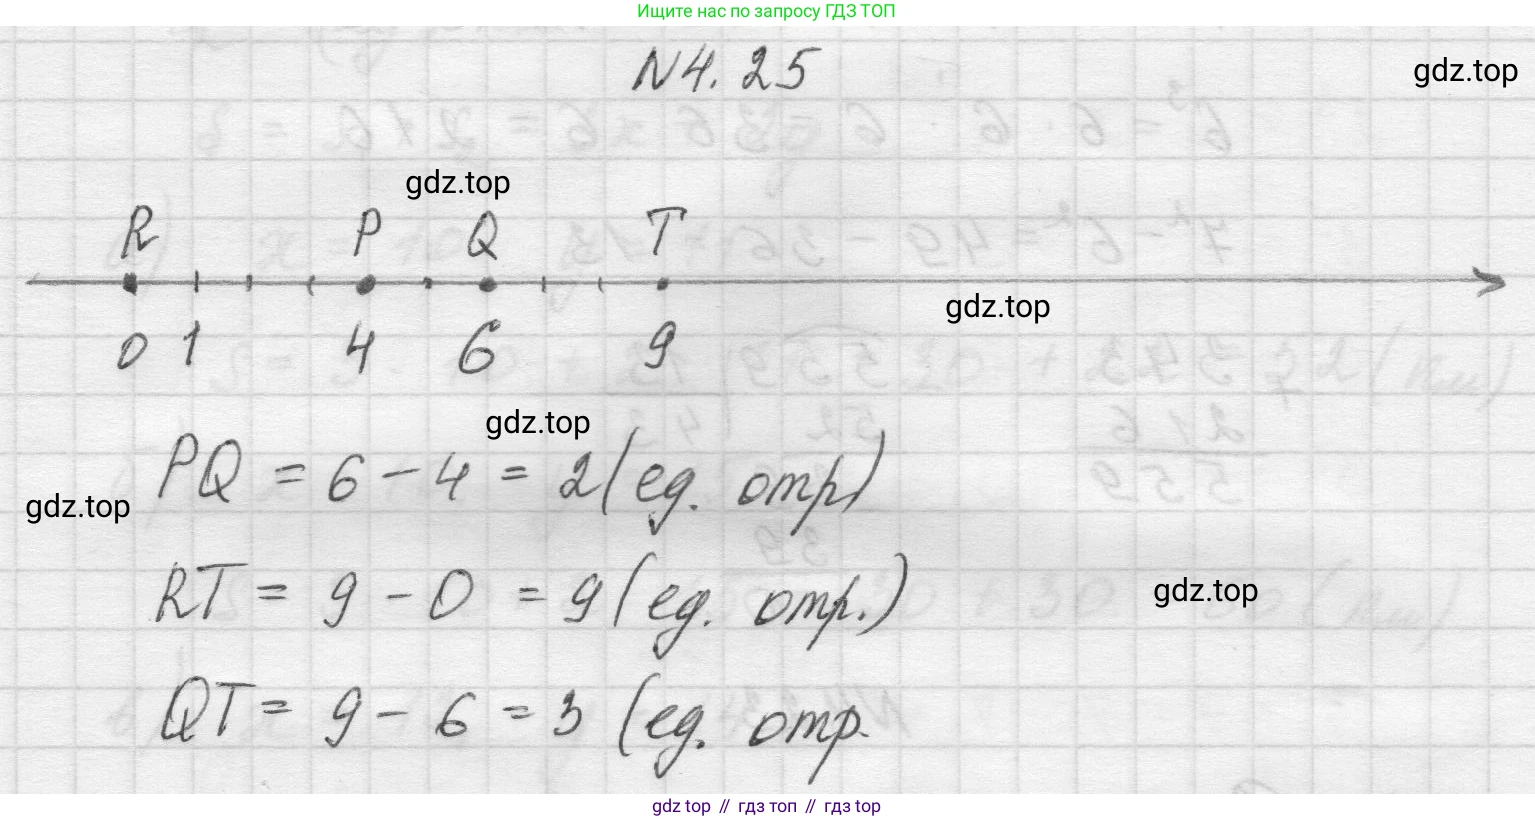 Ищите нас по запросу ГДЗ ТОП
N4.25
gdz.top
gdz.top
R P Q T
gdz.top
0 1 4 6 9
gdz.top
PQ = 6 - 4 = 2 (ед. отр)
gdz.top
RT = 9 - 0 = 9 (ед. отр.)
gdz.top
QT = 9 - 6 = 3 (ед. отр.
gdz top // гдз топ // гдз top